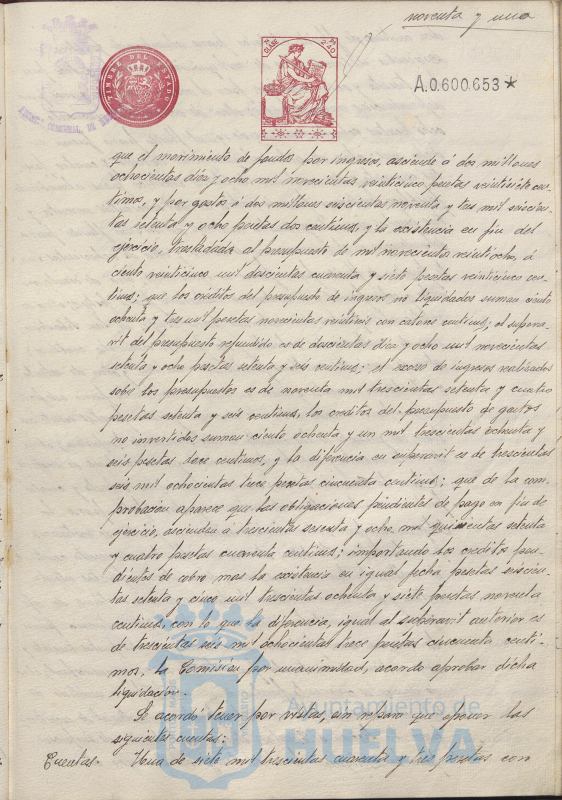 noventa y una
TIMBRE DEL ESTADO
7ª CLASE
2'40 Ps
A.0.600.653*
que el movimiento de fondos por ingresos, asciende á dos millones
ochocientas diez y ocho mil novecientas veinticinco pesetas veintisiete cen-
timos, y por gastos á dos millones seiscientas noventa y tres mil seiscien-
tas setenta y ocho pesetas dos centimos, y la existencia en fin del
ejercicio, trasladada al presupuesto de mil novecientos veintiocho, á
ciento veinticinco mil doscientas cuarenta y siete pesetas veinticinco cen-
timos; que los créditos del presupuesto de ingresos no liquidados suman ciento
ochenta y tres mil pesetas novecientas veintiseis con catorce centimos; el supera-
vit del presupuesto refundido es de doscientas diez y ocho mil novecientas
setenta y ocho pesetas setenta y seis centimos; el exceso de ingresos realizados
sobre los presupuestos es de noventa mil trescientas setenta y cuatro
pesetas setenta y seis centimos, los creditos del presupuesto de gastos
no invertidos suman ciento ochenta y un mil trescientas ochenta y
seis pesetas doce centimos, y la diferencia en superavit es de trescientas
seis mil ochocientas trece pesetas cincuenta centimos; que de la com-
probacion aparece que las obligaciones pendientes de pago en fin de
ejercicio, ascienden á trescientas sesenta y ocho mil quinientas setenta
y cuatro pesetas cuarenta centimos; importando los creditos pen-
dientes de cobro mas la existencia en igual fecha pesetas seiscien-
tas setenta y cinco mil trescientas ochenta y siete pesetas noventa
centimos, con lo que la diferencia, igual al superavit anterior es
de trescientas seis mil ochocientas trece pesetas cincuenta centi-
mos, la Comision por unanimidad, acordo aprobar dicha
liquidación.
Se acordó tener por vistas, sin reparo que oponer las
siguientes cuentas:
Cuentas. Una de siete mil trescientas cuarenta y tres pesetas con
Ayuntamiento de
HUELVA